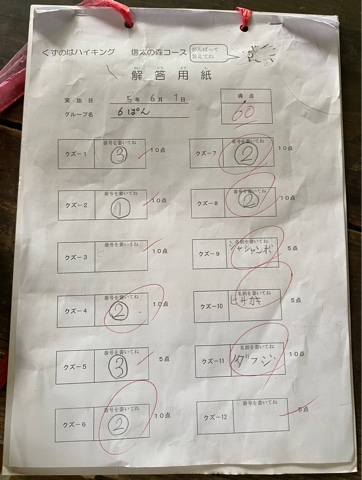 くすのはハイキング 信太の森コース
がんばって
答えてね
解答用紙
実施日 5年 6月 1日
グループ名 6ぱん
得点
60
番号を書いてね
クズー1 ③ 10点
番号を書いてね
クズー2 ① 10点
番号を書いてね
クズー3 10点
番号を書いてね
クズー4 ② 10点
番号を書いてね
クズー5 ③ 5点
番号を書いてね
クズー6 ② 10点
番号を書いてね
クズー7 ② 10点
番号を書いてね
クズー8 ② 10点
名前を書いてね
クズー9 シャシャンボ 5点
名前を書いてね
クズー10 ヒサカキ 5点
名前を書いてね
クズー11 フジ 10点
番号を書いてね
クズー12 5点